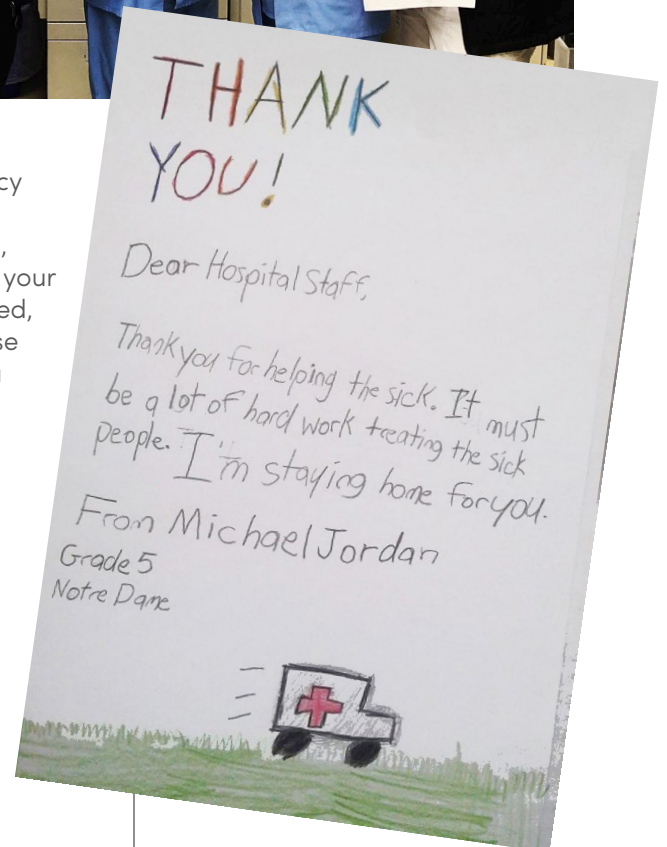 cy
,
your
ed,
se
THANK
YOU!
Dear Hospital Staff,
Thank you for helping the sick. It must
be a lot of hard work treating the sick
people. I'm staying home for you.
From Michael Jordan
Grade 5
Notre Dame